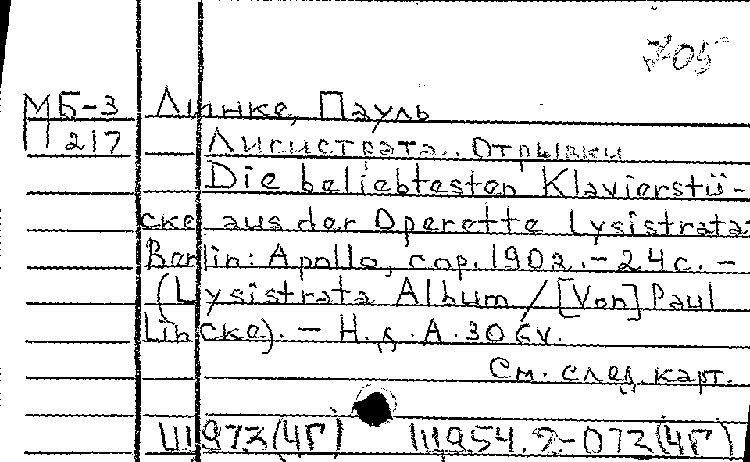 705
МБ-3 Линке, Пауль
П 217 Лисистрата.. Отрывки
Die beliebtesten Klavierstü-
cke aus der Operette Lysistrata.
Berlin: Apollo, cop. 1902. - 24 с. -
(Lysistrata Album / [Von] Paul
Lincke). - Н. д. A. 30 ev.
См. след. карт.
Ш973(4Г) Ш954.2-073(4Г)